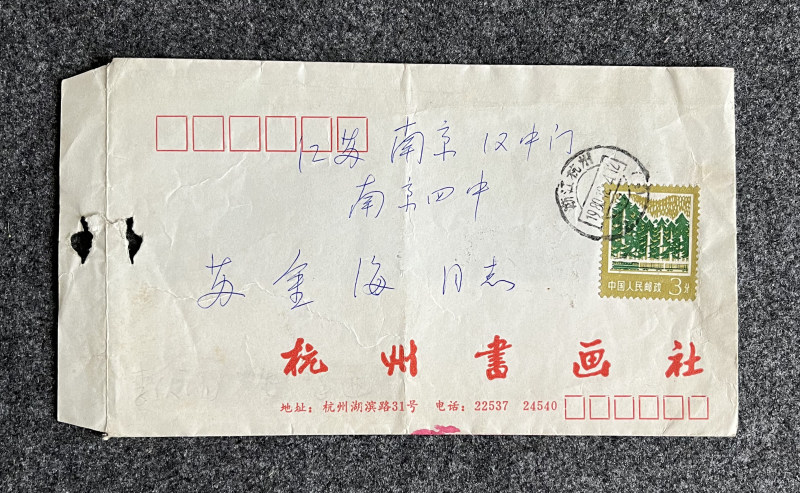 江苏 南京 汉中门
南京四中
苏金海 同志
浙江杭州
中国人民邮政 3分
杭州书画社
地址：杭州湖滨路31号 电话：22537 24540